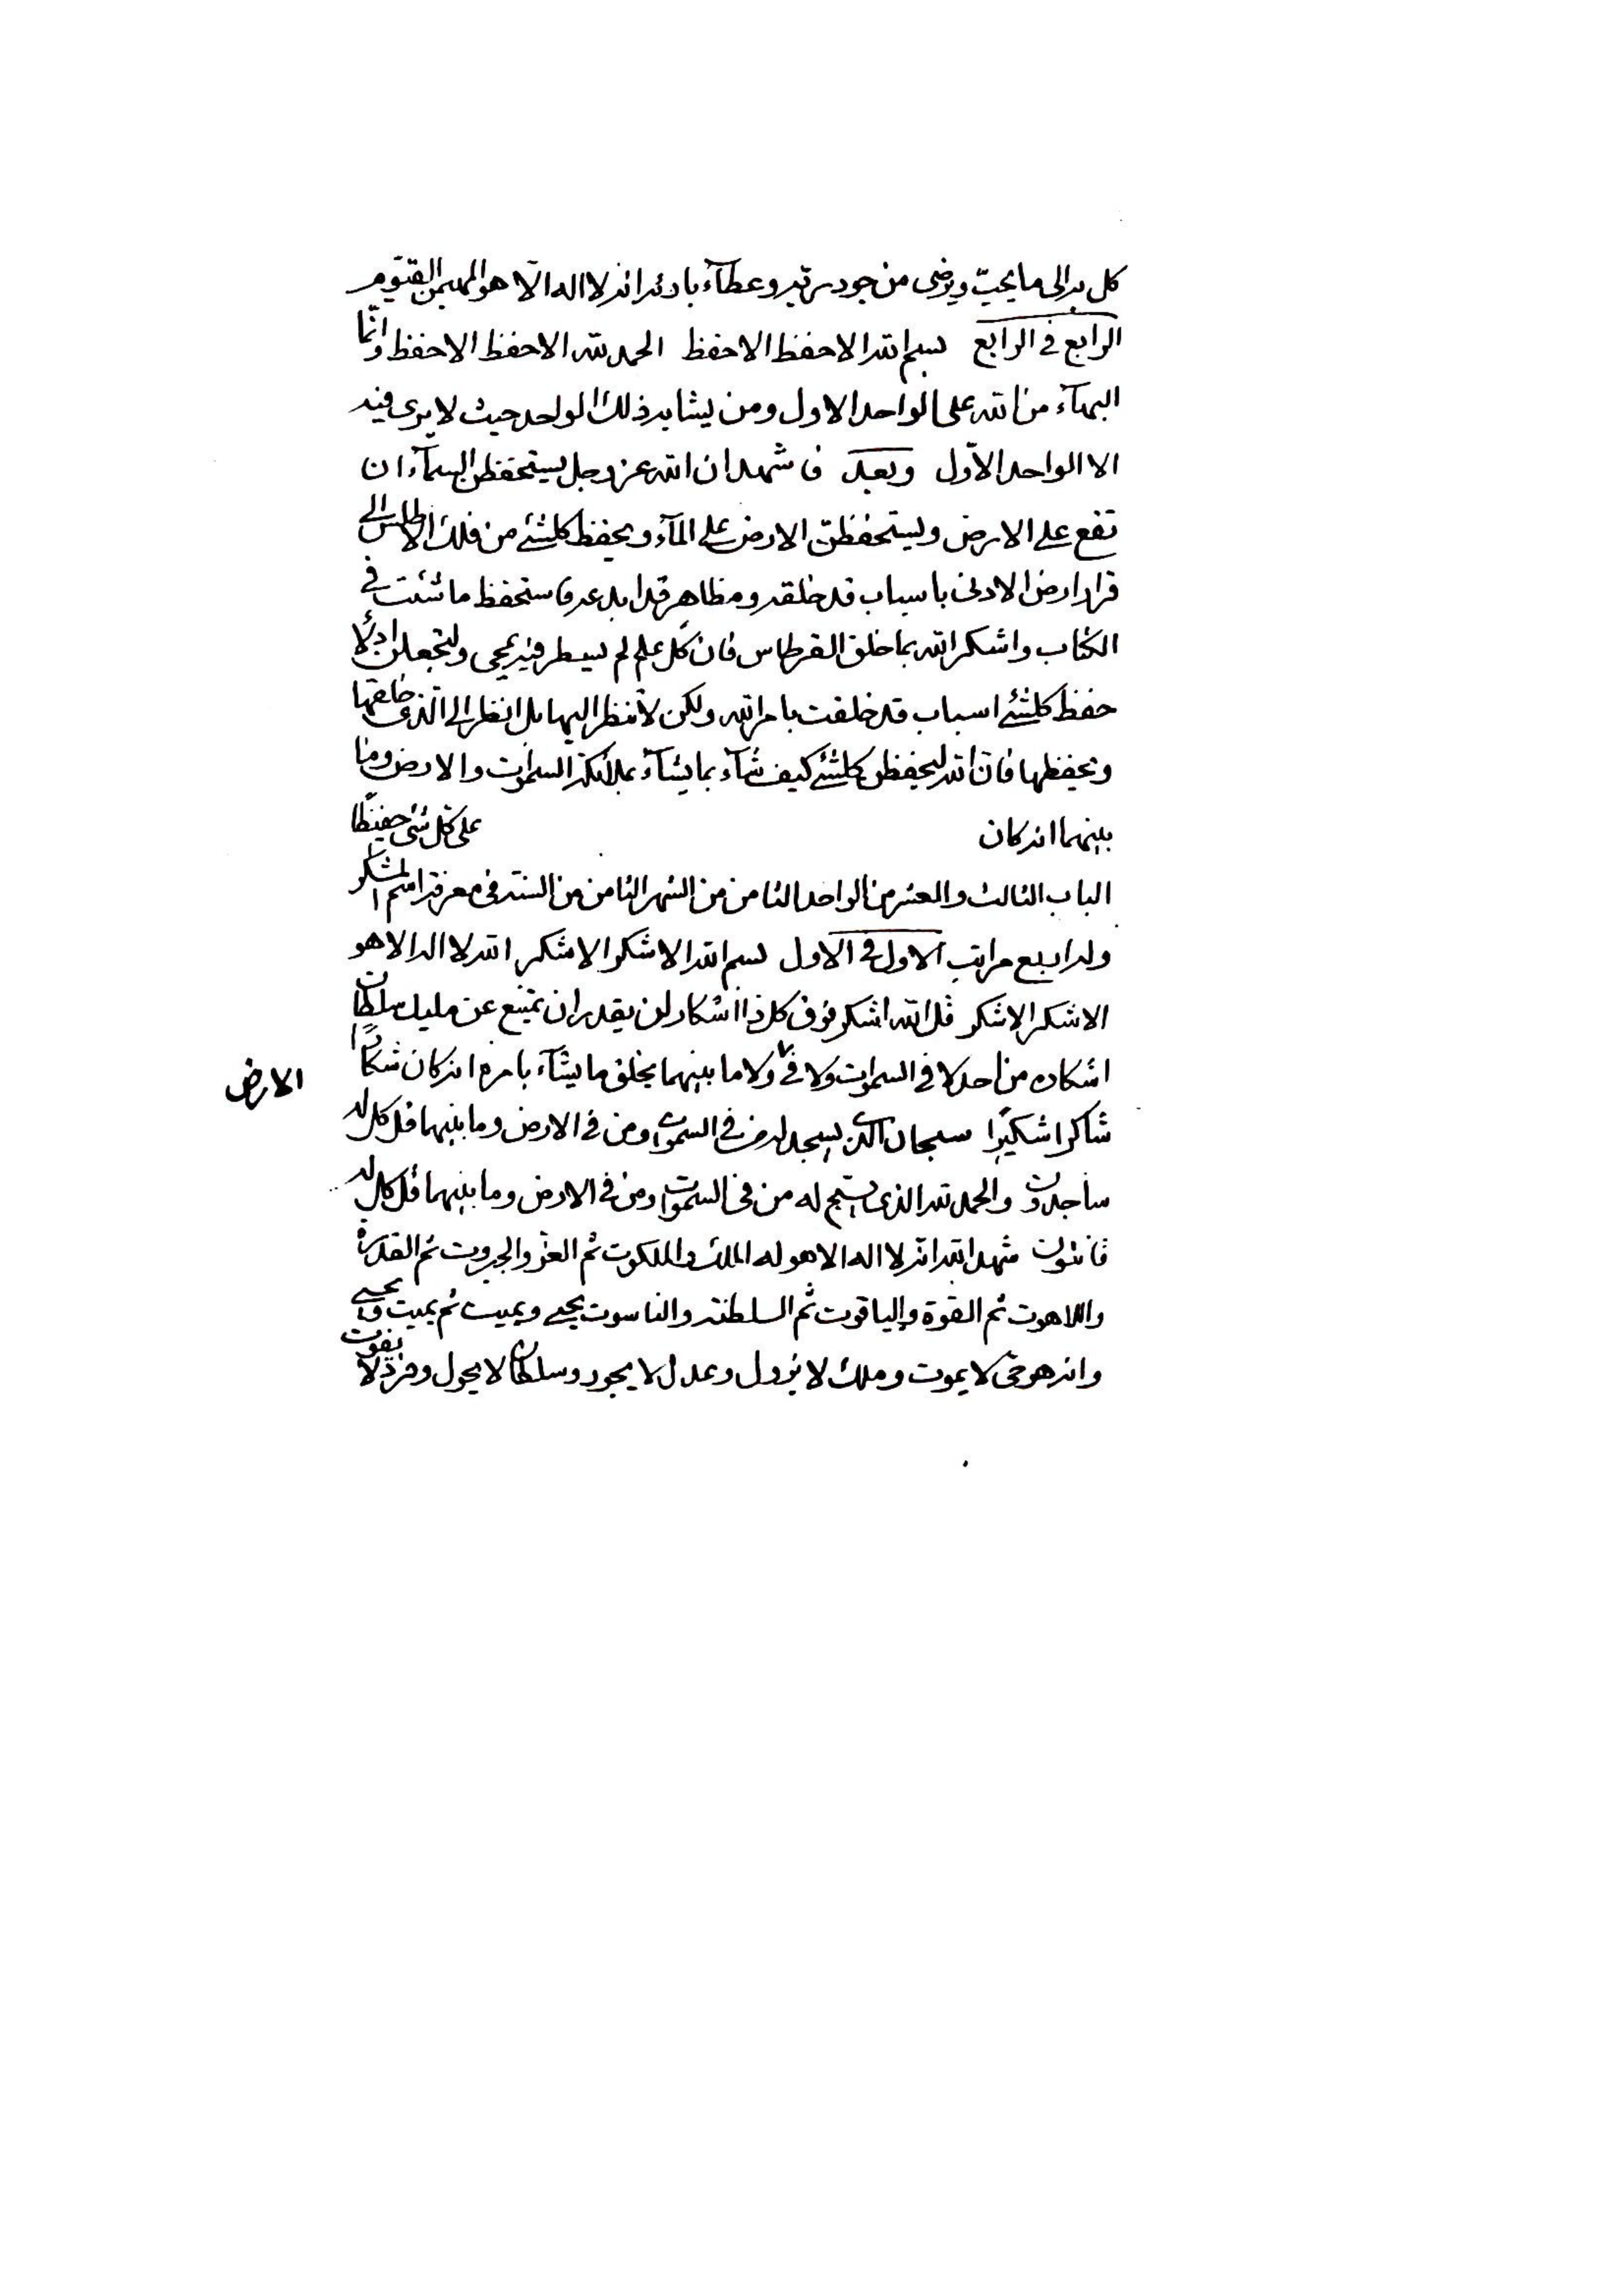 كل به الى ما يحبّ ويرضى من جود ربّه وعطآء بادئه انه لا اله الّا هو المهيمن القيّوم
الرابع فى الرابع بسم الله الاحفظ الاحفظ الحمد لله الاحفظ الاحفظ وانّما
البهآء من الله على الواحد الاول ومن يشابه ذلك الواحد حيث لا يرى فيه
الا الواحد الاوّل وبعد فاشهد ان الله عز وجل ليستحفظن السمآء ان
تقع على الارض وليستحفظنّ الارض على المآء ويحفظ كلشئ من فلك الاطلس الى
قرار ارض الادنى باسباب قد خلقه ومظاهر قد ابدعه فاستحفظ ما شئت فى
الكتاب واشكر الله بما خلق القرطاس فان كل علم لم يسطر فيه يمحى ولتجعلن ادلّاء
حفظ كلشئ اسباب قد خلقت بامر الله ولكن لا تنظر اليها بل انظر الى الذى خلقها
ويحفظها فان الله ليحفظن كلشئ كيف شآء بما يشآء بملائكة السموات والارض وما
بينهما انه كان على كل شئ حفيظًا
الباب الثالث والعشر من الواحد الثامن من الشهر الثامن من السنة فى معرفة اسم المشكر
وله اربع مراتب الاول فى الاول بسم الله الاشكر الاشكر الله لا اله الا هو
الاشكر الاشكر قل الله اشكر فوق كل ذا اشكار لن يقدر ان يمتنع عن مليك سلطان
اشكاره من احد لا فى السموات ولا فى ولا ما بينهما يخلق ما يشآء بامره انه كان شكارًا
الارض
شاكرا شكيرًا سبحان الذى يسجد له من فى السموات ومن فى الارض وما بينهما قل كل له
ساجدون والحمد لله الذى يسبح له من فى السموات ومن فى الارض وما بينهما قل كل له
قانتون شهد الله انه لا اله الا هو له الملك والملكوت ثم العز والجبروت ثم القدرة
واللاهوت ثم القوة والياقوت ثم السلطنة والناسوت يحيى ويميت ثم يميت ويحيى
وانه هو حى لا يموت وملك لا يزول وعدل لا يجور وسلطان لا يحول وفرد لا يفوت